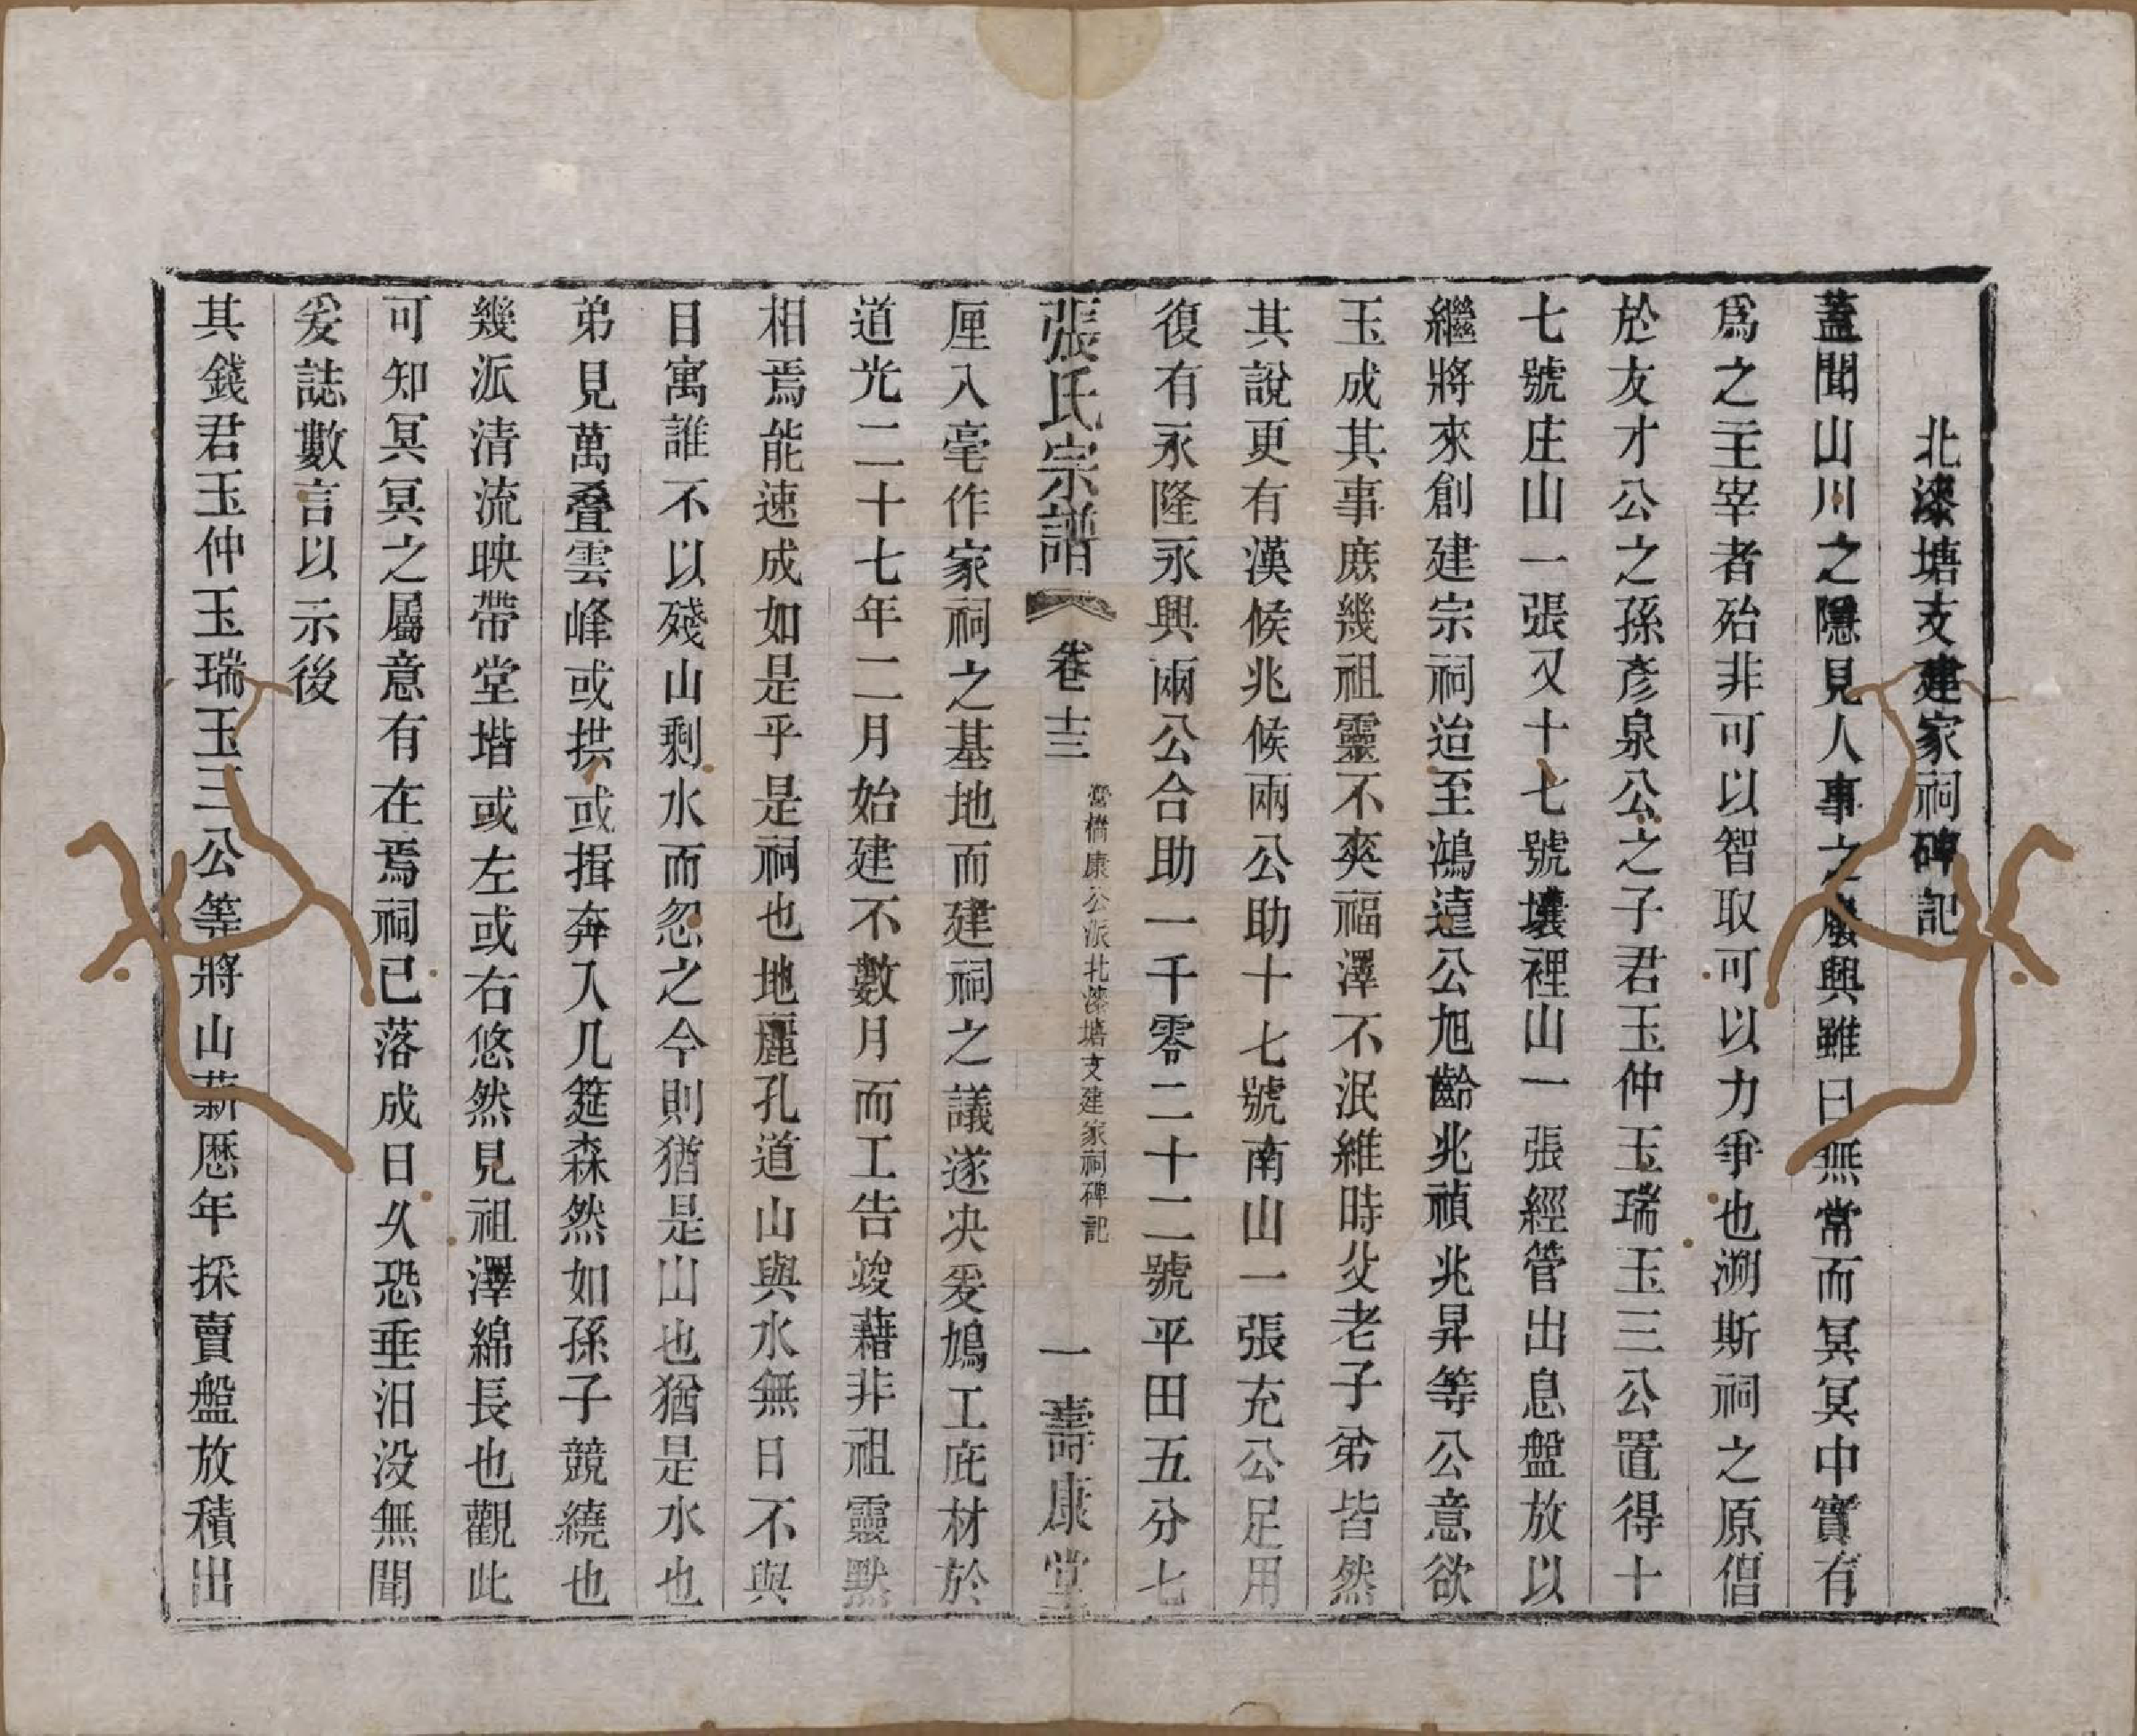 北漆塘支建家祠碑記
蓋聞山川之隱見人事之廢興雖曰無常而冥冥中實有
爲之主宰者殆非可以智取可以力爭也溯斯祠之原倡
於友才公之孫彥泉公之子君玉仲玉瑞玉三公置得十
七號庄山一張又十七號壤裡山一張經管出息盤放以
繼將來創建宗祠迨至鴻逵公旭齡兆禎兆昇等公意欲
玉成其事庶幾祖靈不爽福澤不泯維時父老子弟皆然
其說更有漢候兆候兩公助十七號南山一張充公足用
復有永隆永興兩公合助一千零二十二號平田五分七
張氏宗譜 卷十三 營橋康公派北漆塘支建家祠碑記 一 壽康堂
厘入毫作家祠之基地而建祠之議遂決爰鳩工庀材於
道光二十七年二月始建不數月而工告竣藉非祖靈默
相焉能速成如是乎是祠也地麗孔道山與水無日不與
目寓誰不以殘山剩水而忽之今則猶是山也猶是水也
弟見萬叠雲峰或拱或揖奔入几筵森然如孫子競繞也
幾派清流映帶堂堦或左或右悠然見祖澤綿長也觀此
可知冥冥之屬意有在焉祠已落成日久恐垂汨没無聞
爰誌數言以示後
其錢君玉仲玉瑞玉三公等將山薪歷年採賣盤放積出